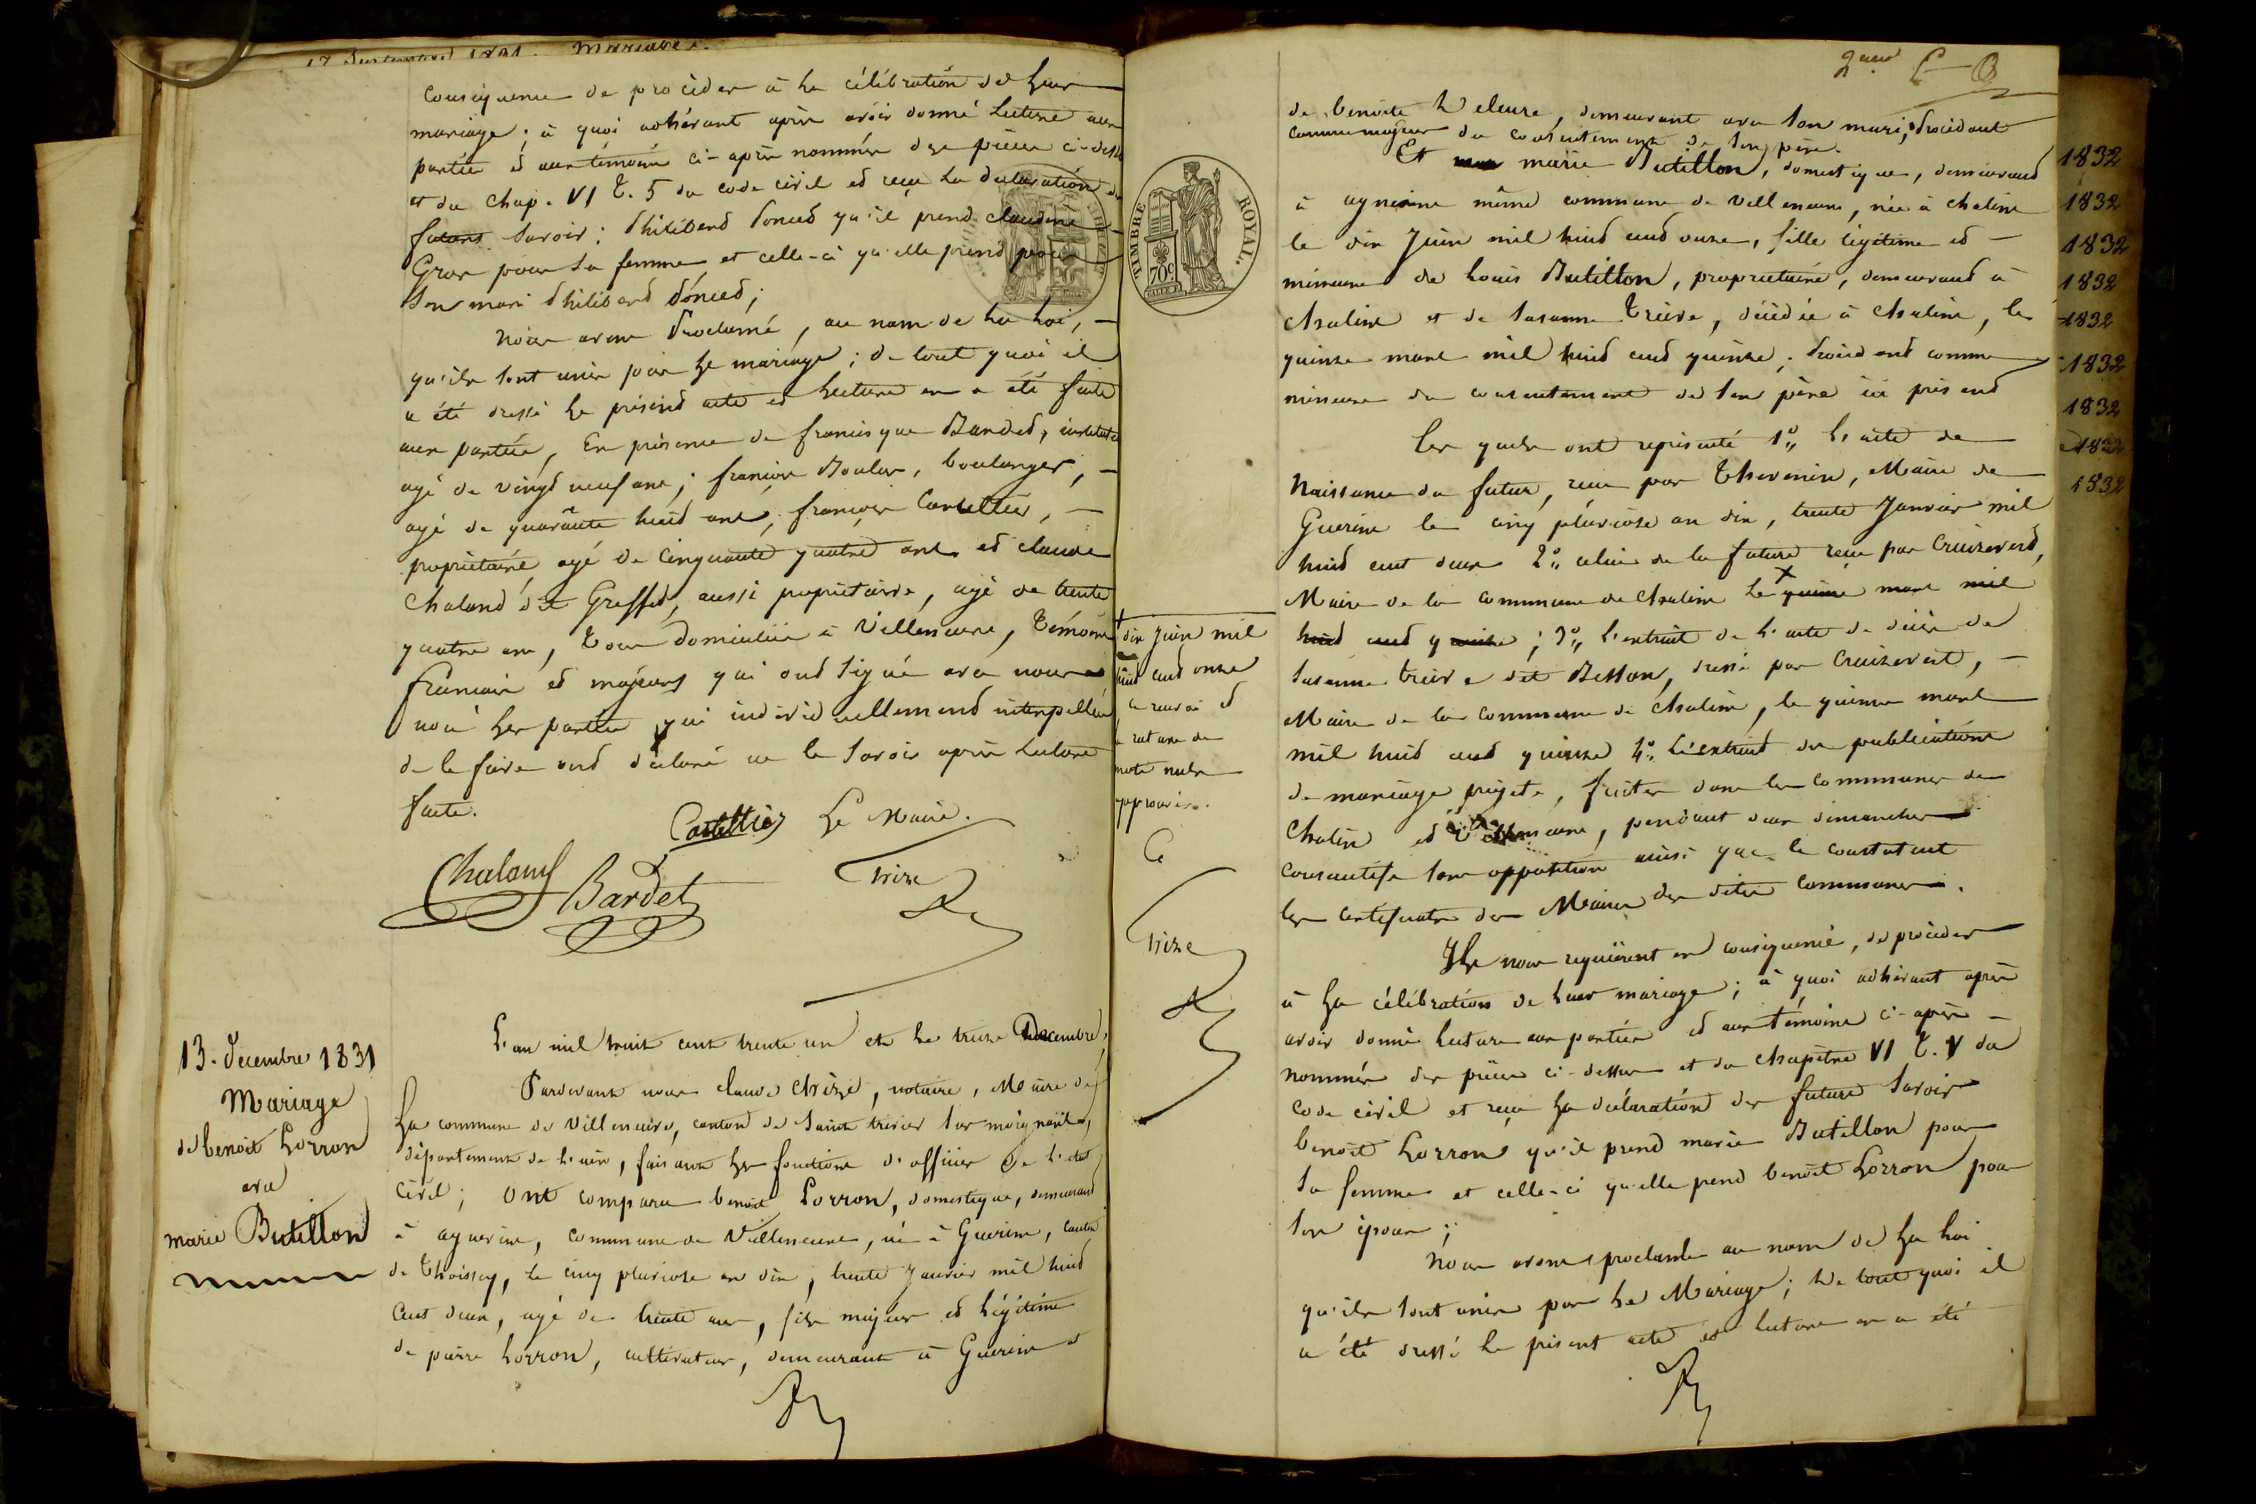 17 Septembre 1831. Mariage.
Consequence de procéder à la célébration de leur
mariage; à quoi adhérant après avoir donné lecture aux
parties et aux témoins ci-après nommés des pièces ci-dessus
et du chap. VI t. 5 du code civil et reçu la déclaration des
futurs savoir: philibert qu'il prend claudine
Gros pour sa femme et celle-ci qu'elle prend pour
son mari philibert
nous avons proclamé, au nom de la loi, —
qu'ils sont unis par le mariage; de tout quoi il
a été dressé le présent acte et lecture en a été faite
aux parties, En présence de francisque Bardet, instituteur
agé de vingt neuf ans; françois Boulon, boulanger, —
agé de quarante huit ans, françois Cartellier, —
propriétaire agé de cinquante quatre ans et claude
Chaland dit Greffet, aussi propriétaire, agé de trente
quatre ans, tous domiciliés à Villeneuve, témoins
français et majeurs qui ont signé avec nous
non les parties qui individuellement interpellées
de le faire ont déclaré ne le savoir après lecture
faite.
Cartellier Le Maire.
Chaland Bardet Trize
13. Decembre 1831
Mariage
de benoit Lorron
avec
marie Butillon
L'an mil huit cent trente un et le treize Decembre,
Pardevant nous claude Trize, notaire, Maire de
la commune de Villeneuve, canton de Saint trivier sur moignans,
département de l'ain, faisant les fonctions d'officier de l'etat
civil; Ont comparu benoit Lorron, domestique, demeurant
à agnereins, commune de Villeneuve, né à Guereins, canton
de Thoissey, le cinq pluviose an dix, trente Janvier mil huit
cent deux, agé de trente ans, fils majeur et légitime
de pierre Lorron, cultivateur, demeurant à Guereins et
2eme
TIMBRE ROYAL.
70c
de benoite demeurant avec son mari, procédant
comme majeur du consentement de son père.
Et marie Butillon, domestique, demeurant
à agnereins même commune de Villeneuve, née à chaleins
le dix Juin mil huit cent onze, fille légitime et —
mineure de Louis Butillon, propriétaire, demeurant à
chaleins et de Susanne Trève, décédée à chaleins, le
quinze mars mil huit cent quinze; procédant comme
mineure du consentement de son père ici présent
Les quels ont représenté 1° L'acte de
Naissance du futur, reçu par Thevenin, Maire de
Guereins le cinq pluviose an dix, trente Janvier mil
huit cent deux 2° celui de la future reçu par Cruizevert,
Maire de la commune de Chaleins le quinze mars mil
huit cent quinze; 3° L'extrait de l'acte de décès de
Susanne trève dit Besson, dressé par Cruizevert, —
Maire de la commune de Chaleins, le quinze mars
mil huit cent quinze 4° L'extrait des publications
de mariage projeté, faites dans les communes de
Chaleins et Villeneuve, pendant deux dimanches
consecutifs sans opposition ainsi que le constatent
les certificats des Maires des dites communes.
Ils nous requièrent en conséquence, de procéder
à la célébration de leur mariage; à quoi adhérant après
avoir donné lecture aux parties et aux témoins ci-après —
nommés des pièces ci-dessus et du chapitre VI t. V du
code civil et reçu la déclaration des futurs savoir
benoit Lorron qu'il prend marie Butillon pour
sa femme et celle-ci qu'elle prend benoit Lorron pour
son époux;
nous avons proclamé au nom de la loi
qu'ils sont unis par le Mariage; De tout quoi il
a été dressé le présent acte et lecture en a été
dix Juin mil
huit cent onze
ce renvoi et
rature de
mots nuls
approuvés.
Trize
1832
1832
1832
1832
1832
1832
1832
1832
1832